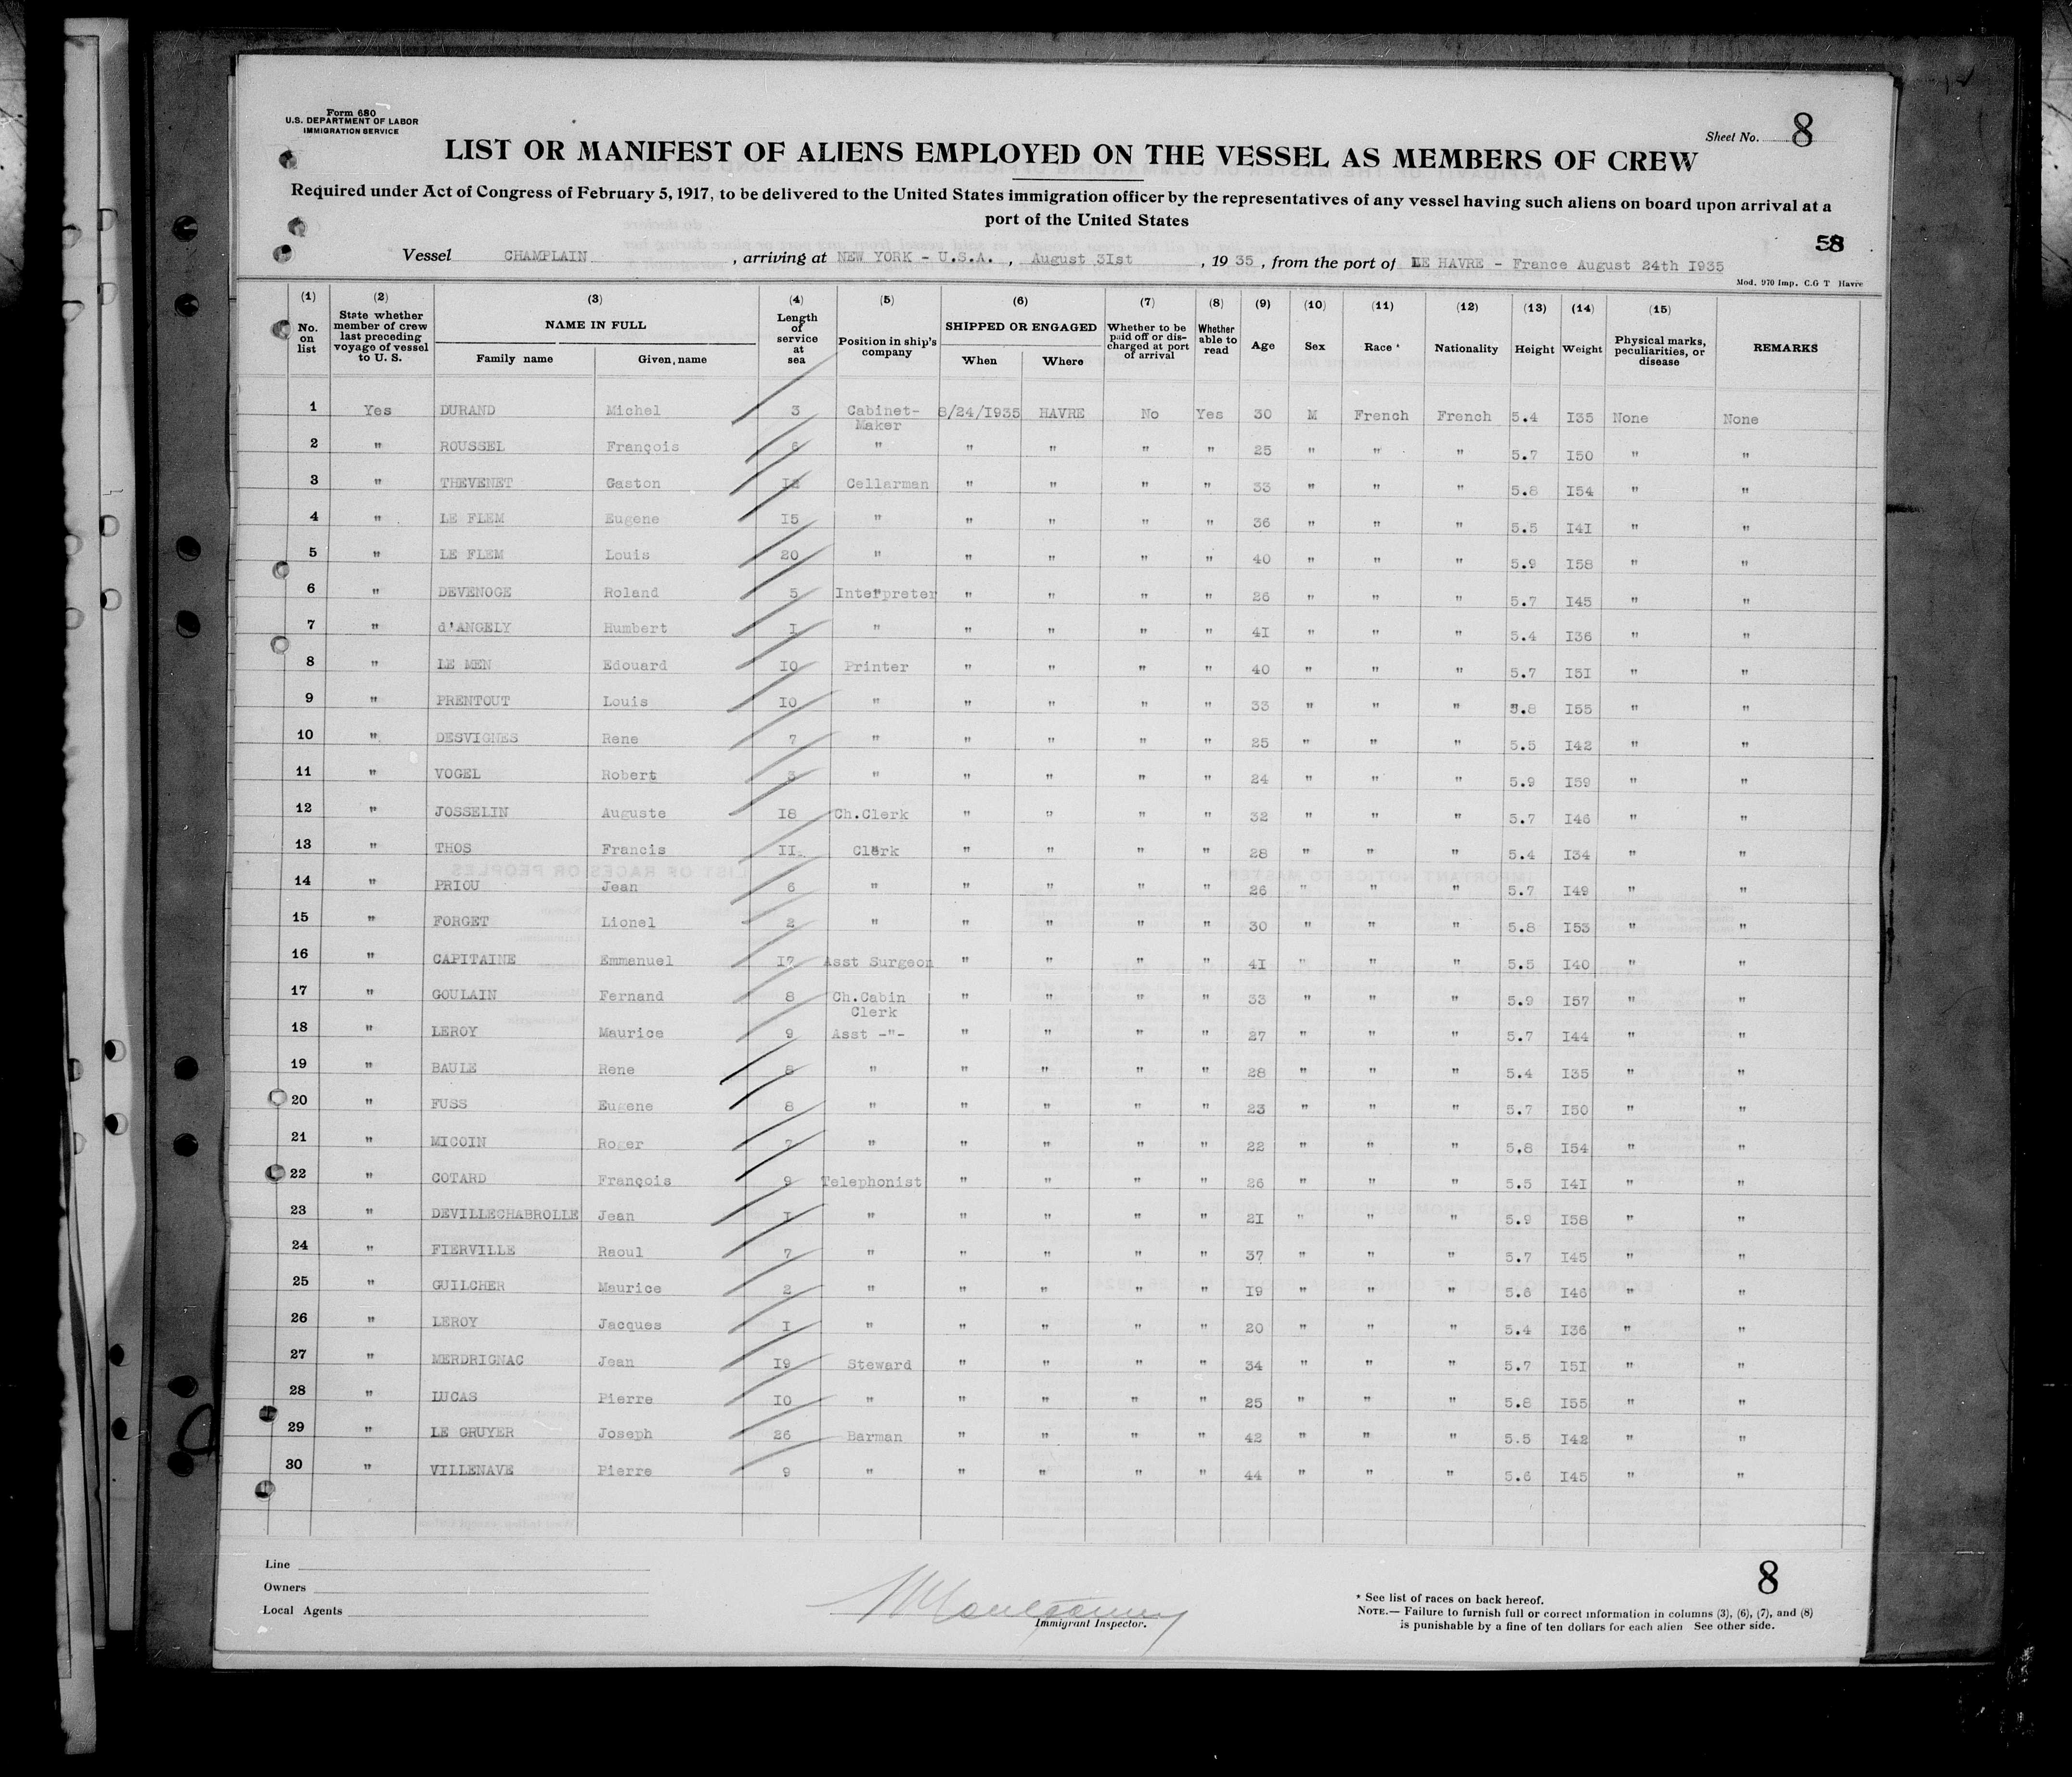 Form 680
U.S. DEPARTMENT OF LABOR
IMMIGRATION SERVICE
Sheet No. 8
LIST OR MANIFEST OF ALIENS EMPLOYED ON THE VESSEL AS MEMBERS OF CREW
Required under Act of Congress of February 5, 1917, to be delivered to the United States immigration officer by the representatives of any vessel having such aliens on board upon arrival at a
port of the United States
58
Vessel CHAMPLAIN, arriving at NEW YORK - U.S.A., August 31st, 19 35, from the port of LE HAVRE - France August 24th I935
Mod. 970 Imp. C.G T Havre
(1) No. on list (2) State whether member of crew last preceding voyage of vessel to U. S. (3) NAME IN FULL Family name Given name (4) Length of service at sea (5) Position in ship's company (6) SHIPPED OR ENGAGED When Where (7) Whether to be paid off or discharged at port of arrival (8) Whether able to read (9) Age (10) Sex (11) Race * (12) Nationality (13) Height (14) Weight (15) Physical marks, peculiarities, or disease REMARKS
1 Yes DURAND Michel 3 Cabinet-Maker 8/24/I935 HAVRE No Yes 30 M French French 5.4 I35 None None
2 " ROUSSEL François 6 " " " " " 25 " " " 5.7 I50 " "
3 " THEVENET Gaston Cellarman " " " " 33 " " " 5.8 I54 " "
4 " LE FLEM Eugene I5 " " " " " 36 " " " 5.5 I4I " "
5 " LE FLEM Louis 20 " " " " " 40 " " " 5.9 I58 " "
6 " DEVENOGE Roland 5 Interpreter " " " " 26 " " " 5.7 I45 " "
7 " d'ANGELY Humbert I " " " " " 4I " " " 5.4 I36 " "
8 " LE MEN Edouard IO Printer " " " " 40 " " " 5.7 I5I " "
9 " PRENTOUT Louis IO " " " " " 33 " " " 5.8 I55 " "
10 " DESVIGNES Rene 7 " " " " " 25 " " " 5.5 I42 " "
11 " VOGEL Robert 3 " " " " " 24 " " " 5.9 I59 " "
12 " JOSSELIN Auguste I8 Ch.Clerk " " " " 32 " " " 5.7 I46 " "
13 " THOS Francis II Clerk " " " " 28 " " " 5.4 I34 " "
14 " PRIOU Jean 6 " " " " " 26 " " " 5.7 I49 " "
15 " FORGET Lionel 2 " " " " " 30 " " " 5.8 I53 " "
16 " CAPITAINE Emmanuel I7 Asst Surgeon " " " " 4I " " " 5.5 I40 " "
17 " GOULAIN Fernand 8 Ch.Cabin Clerk " " " " 33 " " " 5.9 I57 " "
18 " LEROY Maurice 9 Asst -"- " " " " 27 " " " 5.7 I44 " "
19 " BAULE Rene " " " " " 28 " " " 5.4 I35 " "
20 " FUSS Eugene 8 " " " " " 23 " " " 5.7 I50 " "
21 " MICOIN Roger 7 " " " " " 22 " " " 5.8 I54 " "
22 " COTARD François 9 Telephonist " " " " 26 " " " 5.5 I4I " "
23 " DEVILLECHABROLLE Jean I " " " " " 2I " " " 5.9 I58 " "
24 " FIERVILLE Raoul 7 " " " " " 37 " " " 5.7 I45 " "
25 " GUILCHER Maurice 2 " " " " " I9 " " " 5.6 I46 " "
26 " LEROY Jacques I " " " " " 20 " " " 5.4 I36 " "
27 " MERDRIGNAC Jean I9 Steward " " " " 34 " " " 5.7 I5I " "
28 " LUCAS Pierre IO " " " " " 25 " " " 5.8 I55 " "
29 " LE GRUYER Joseph 26 Barman " " " " 42 " " " 5.5 I42 " "
30 " VILLENAVE Pierre 9 " " " " " 44 " " " 5.6 I45 " "
Line
Owners
Local Agents
Immigrant Inspector.
8
* See list of races on back hereof.
NOTE.— Failure to furnish full or correct information in columns (3), (6), (7), and (8)
is punishable by a fine of ten dollars for each alien See other side.